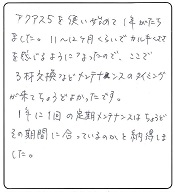 アクアス5を使い始めて1年がたち
ました。11〜12ヶ月くらいでカルキくささ
を感じるようになったので、ここで
ろ材交換などメンテナンスのタイミング
が来てちょうどよかったです。
1年に1回の定期メンテナンスはちょうど
その期間に合っているのかと納得しま
した。